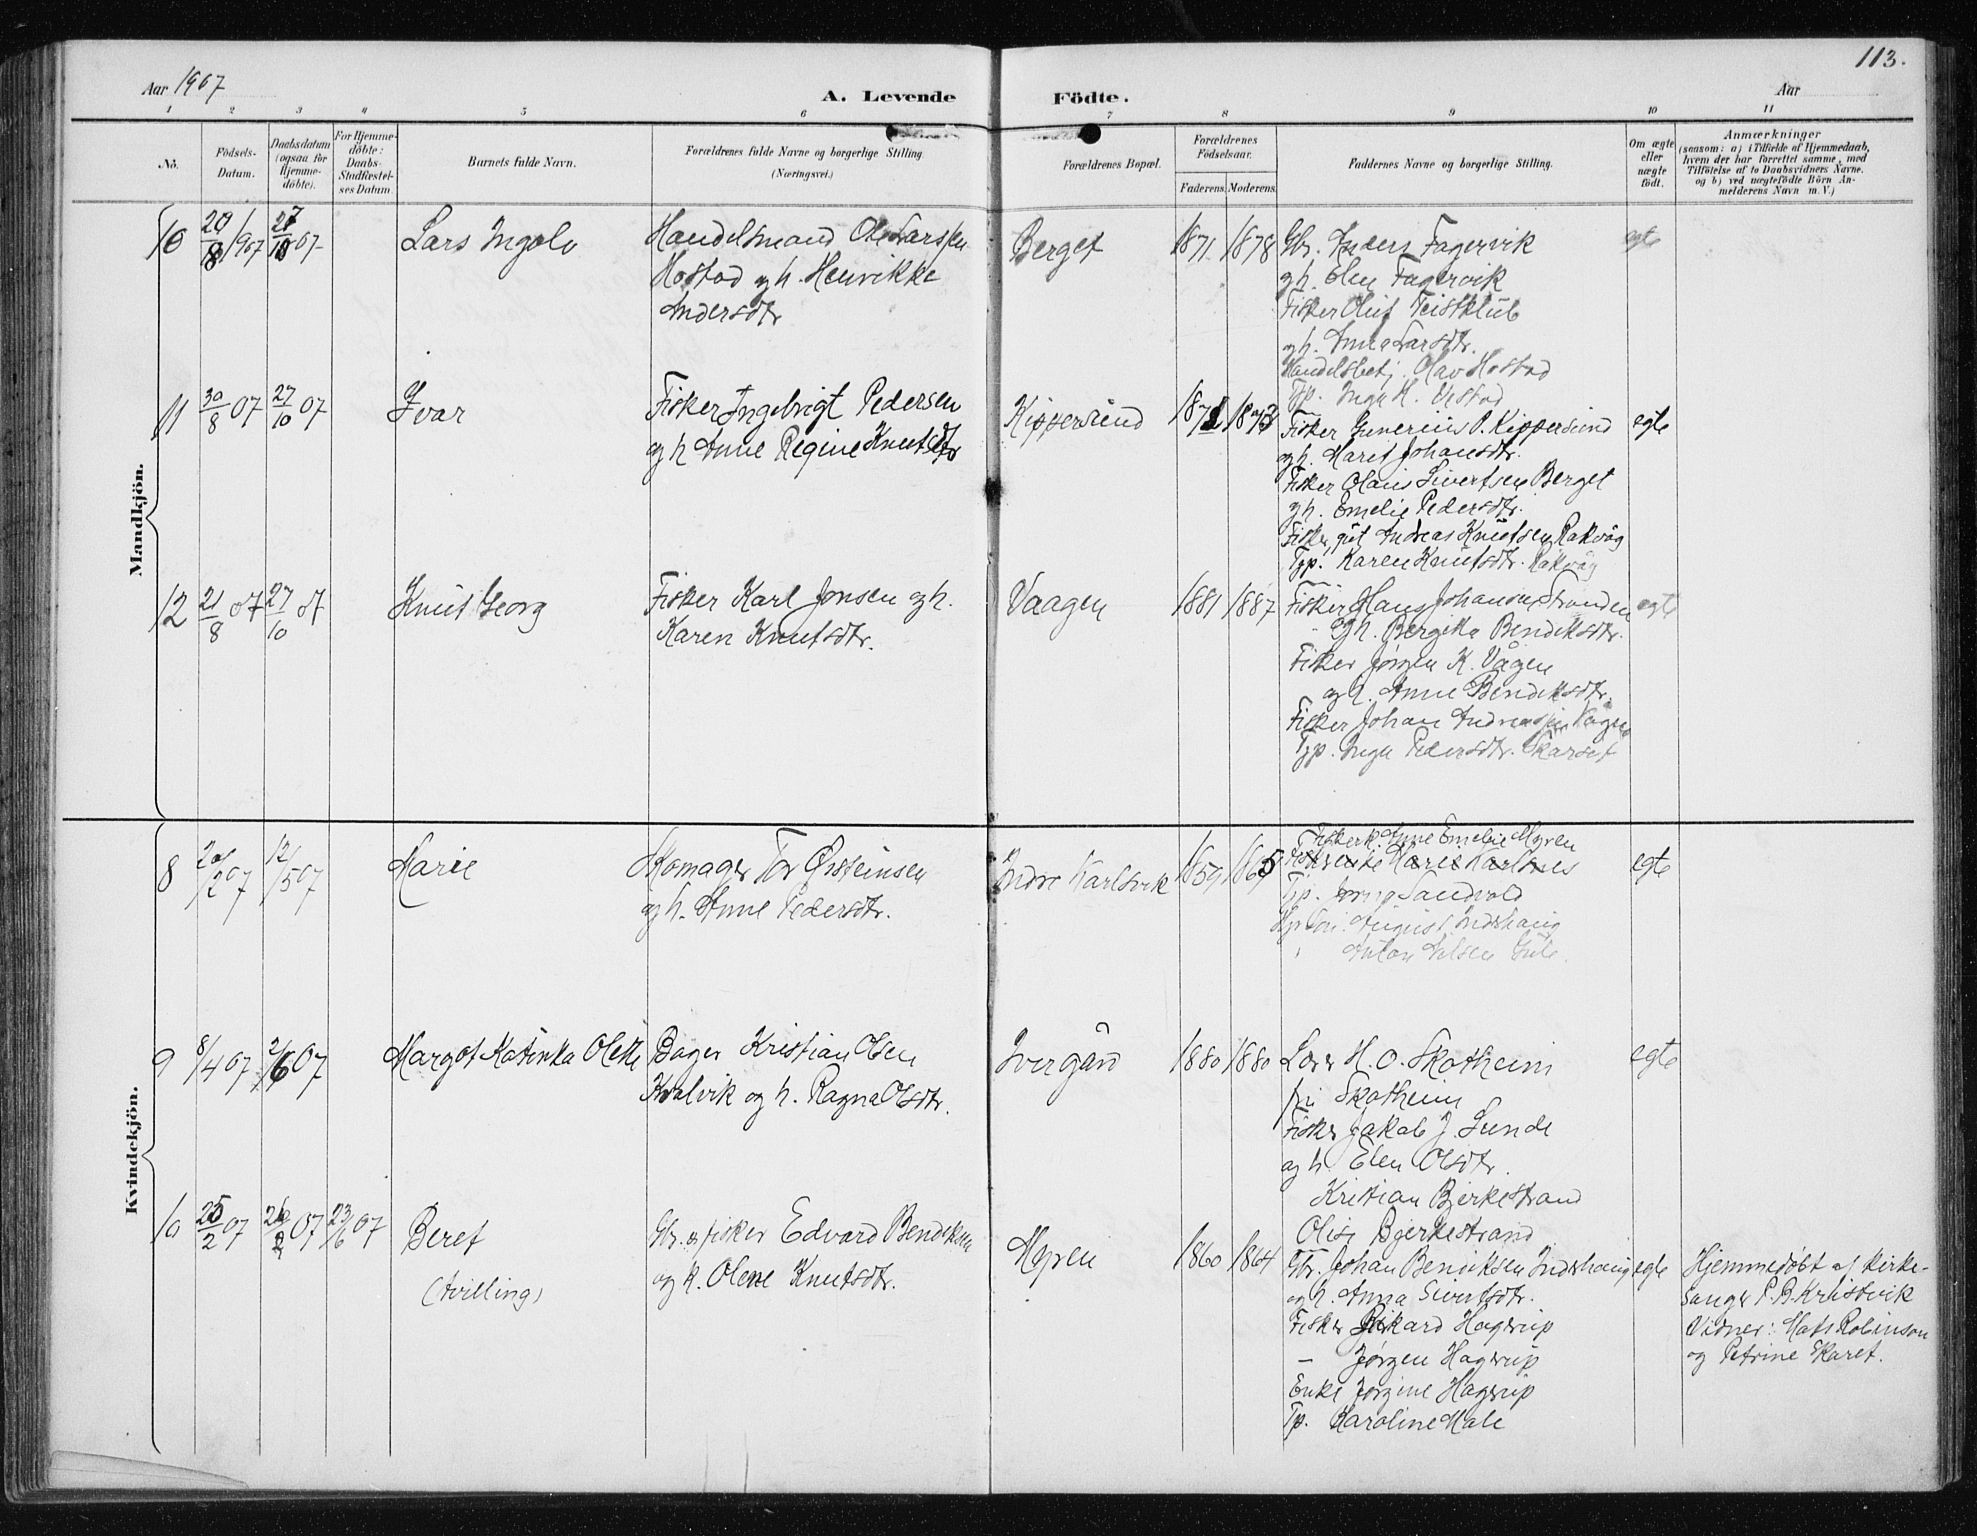 113.
Aar 1907
A. Levende Födte.
Aar
1 2 3 4 5 6 7 8 9 10 11
No.
Födsels-Datum.
Daabsdatum (ogsaa for Hjemme-döbte).
For Hjemme-döbte: Daabs-Stadfæstel-ses Datum.
Barnets fulde Navn.
Forældrenes fulde Navne og borgerlige Stilling
(Næringsvei.)
Forældrenes Bopæl.
Forældrenes Födselsaar.
Faderens. Moderens.
Faddernes Navne og borgerlige Stilling.
Om ægte eller uægte födt.
Anmærkninger
(saasom: a) i Tilfælde af Hjemmedaab,
hvem der har forrettet samme, med
Tilföielse af to Daabsvidners Navne.
og b) ved uægtefödte Börn An-
melderens Navn m. V.)
Mandkjön.
10 20/8 1907 27/10 07 Lars Ingolv
Handelsmand Ole Larssen
Hostad og h. Henrikke
Andersdtr
Berget 1871 1878
Gbr. Anders Fagervik
og h. Elen Fagervik
Fisker Oluf Teistklub
og h. Anna Larsdtr.
Handelsbetj. Olav Hostad
Tjp. Inga H.
egte
11 30/8 07 27/10 07 Ivar
Fisker Ingebrigt Pedersen
og h Anne Regine Knutsdtr
Kippersund 1871 1873
Fisker Gunerius P. Kippersund
og h. Maret Johansdtr.
Fisker Olaus Sivertsen Berget
og h. Emelie Pedersdtr.
Fisker gut Andreas Knutsen Rakvåg
Tjp. Karen Knutsdtr. Rakvåg
egte
12 21/8 07 27/10 07 Knut Georg
Fisker Karl Jonsen og h.
Karen Knutsdtr.
Vaagen 1881 1887
Fisker Hans Johansen Stranden
og h. Bergitha Bendiksdtr.
Fisker Jørgen K. Vågen
og h. Anne Bendiksdtr.
Fisker Johan
Tjp. Inga Pedersdtr. Skarset
egte
Kvindekjön.
8 20/2 07 12/5 07 Marie
Skomager Tor Øisteinsen
og h. Anne Pedersdtr.
Indre Karlsvik 1859 1865
Fiskerk. Anne Emelie Myren
Marie Karlsnes
Tjp. Sandvold
August Indrhaug
Anton
egte
9 8/4 07 2/6 07 Margot Katinka Olette
Bager Kristian Olsen
Kvalvik og h. Ragna Olsdtr.
Ivergård 1880 1880
Lærer H. O. Skotheim
fru Skotheim
Fisker Jakob J. Sunde
og h. Elen Olsdtr.
Kristian Bjerkestrand
Olise Bjerkestrand
egte
10 25/2 07 26/2 07 23/6 07 Beret
(tvilling)
Gbr. og fisker Edvard Bendiksen
og h. Olene Knutsdtr.
Myren 1860 1864
Gbr. Johan Bendiksen Indrhaug
og h. Anna Sivertsdtr.
Fisker Rikard Hagerup
— Jørgen Hagerup
Enke Jørgine Hagerup
Tp. Karoline Male
egte
Hjemmedøbt af Kirke-
sanger P. B. Kristvik
Vidner: Mats Robinson
og Petrine Skaret.